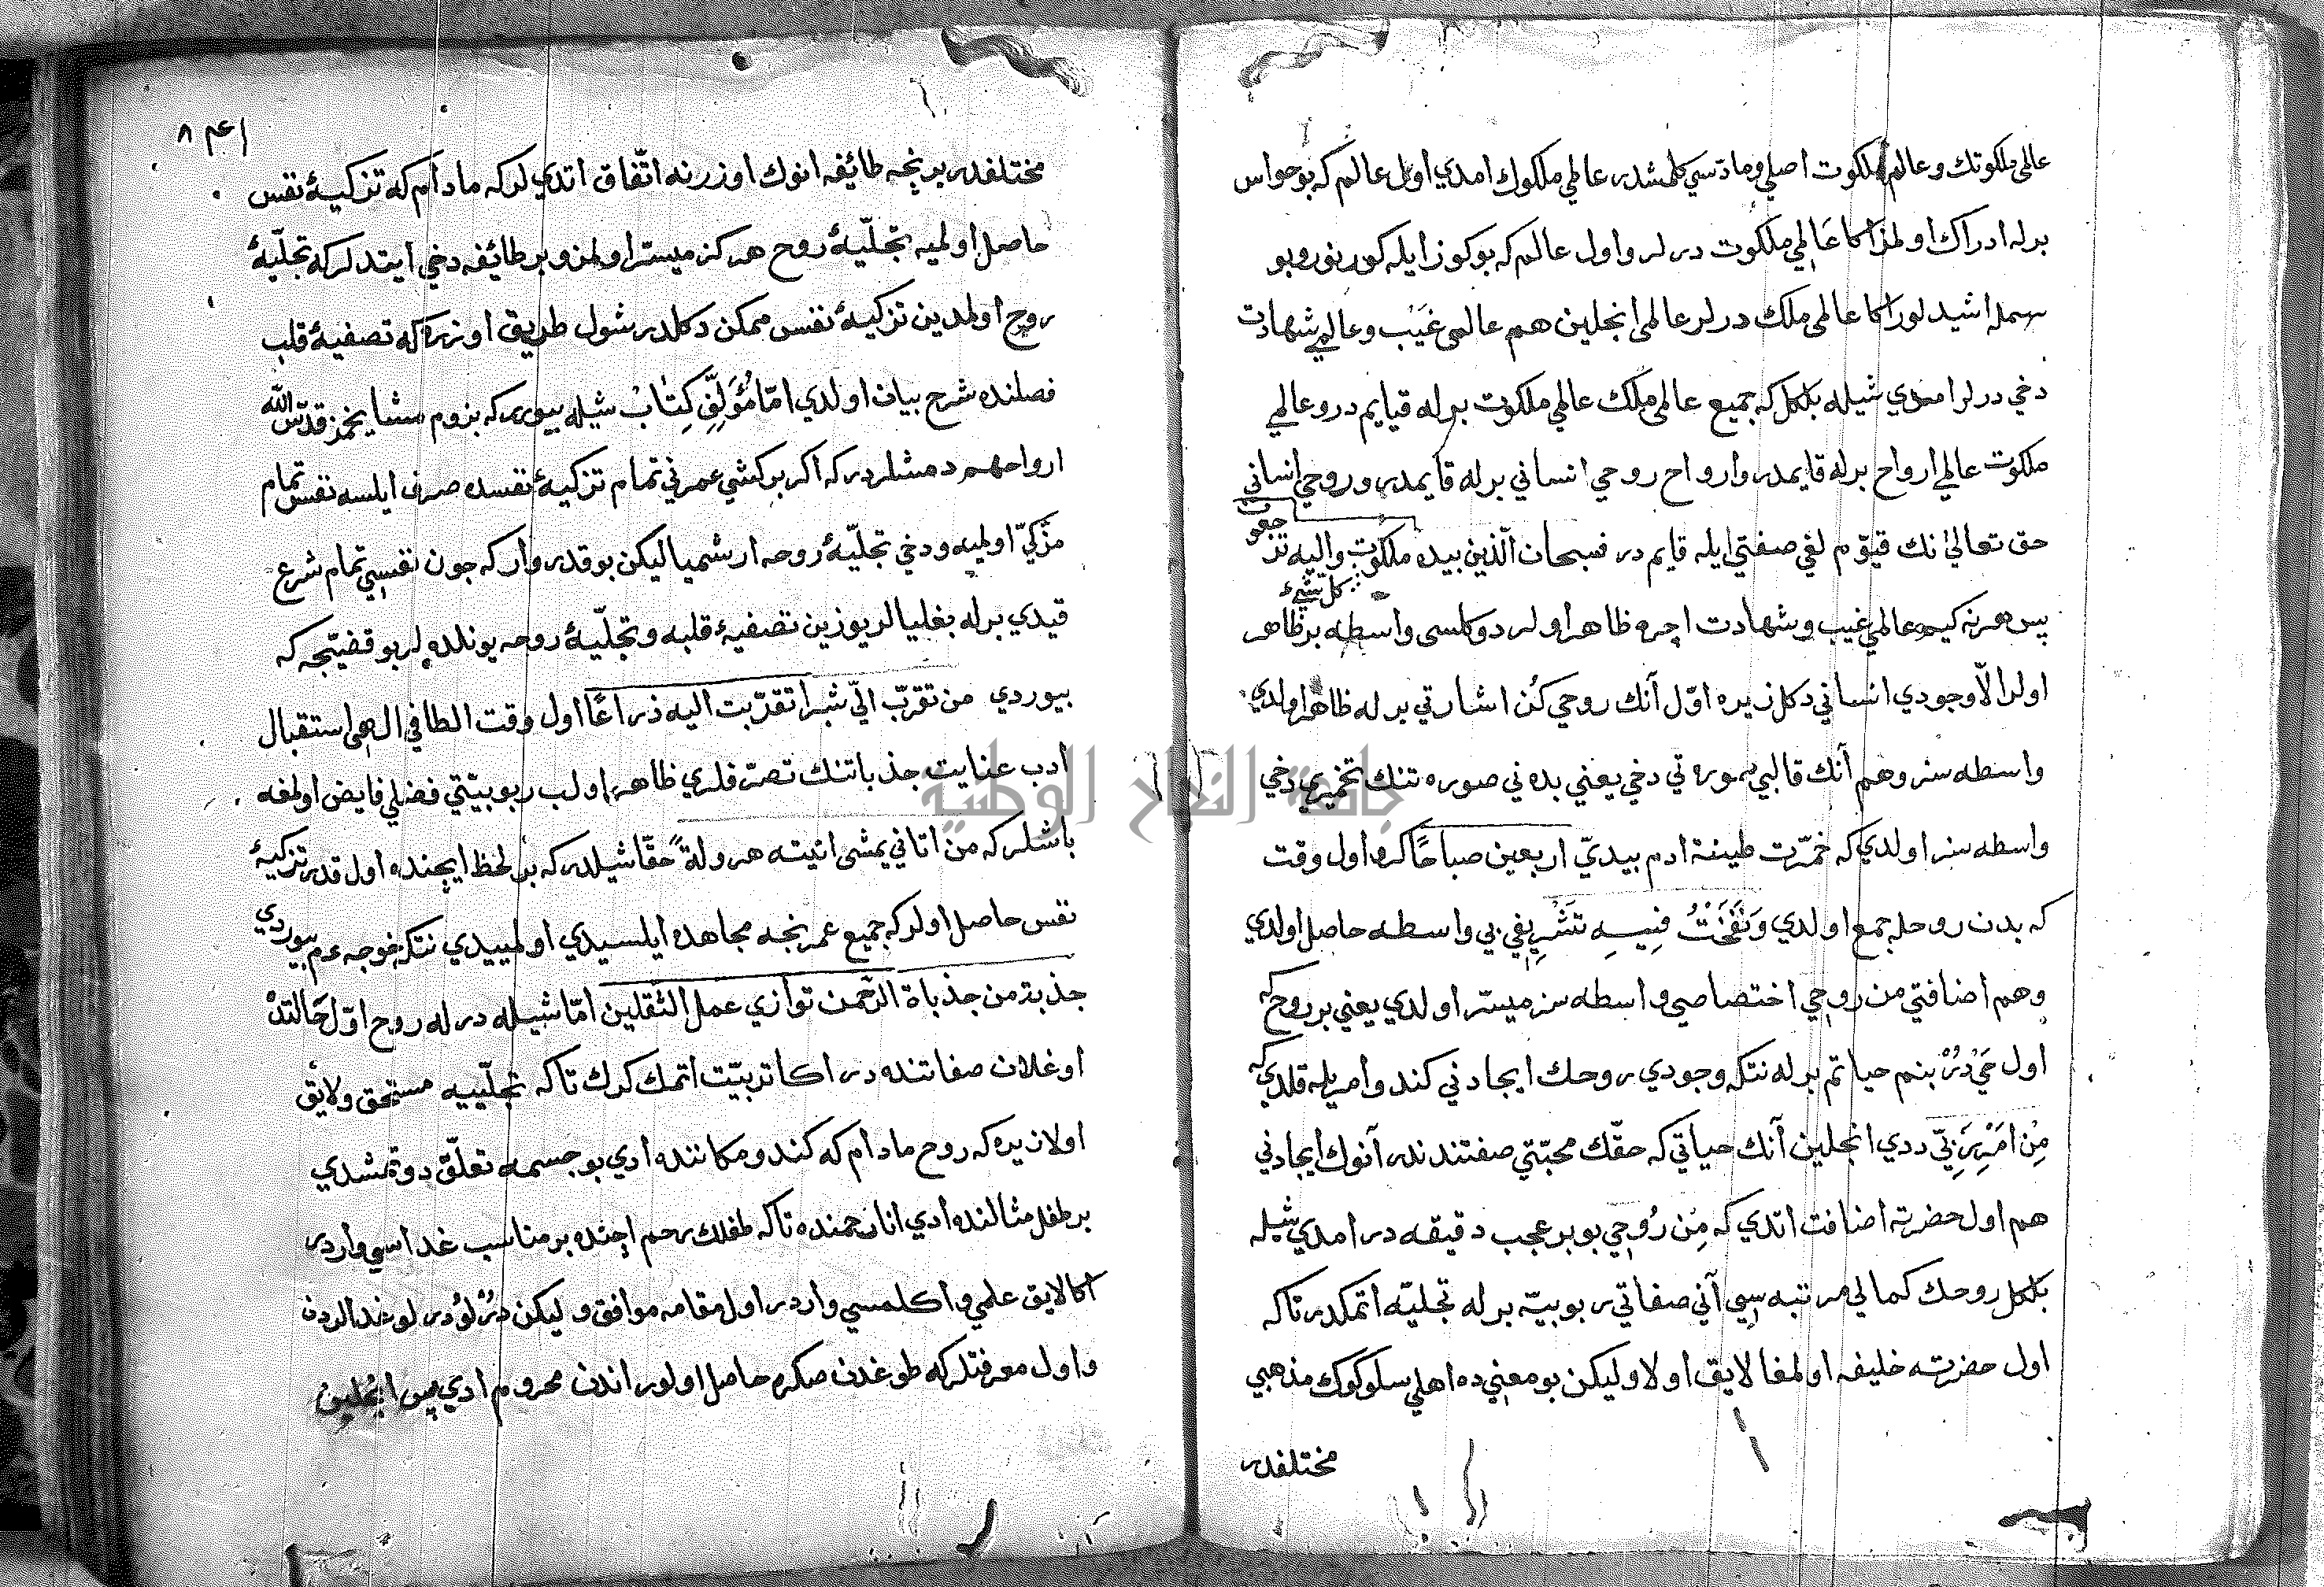 عالمي ملكوتك و عالم ملكوت اصلي و مادّسي كلمشدر عالمي ملكوك امدي اول عالم كه بو حواس
برله ادراك اولمز اكا عَالمِي ملكوت درلر و اول عالم كه بو كوز ايله كورينور و بو
سمله اشيدلور اكا عالمي ملك درلر عالمي انجلين هم عالمي غَيْب و عالمي شهادت
دخي درلر امدي شيله بلكل كه جميع عالمي ملك عالمي ملكوت برله قيايم در و عالمي
ملكوت عالمي ارواح برله قايمدر و ارواح روحي انساني برله قايمدر و روحي انساني
حق تعالىٰ نك قيّوم لغي صفتي ايله قايم در فسبحان الّذين بيده ملكوت
كل شيء
و اليه ترجعون
پس هر نه كيم عالمي غيب و شهادت اچره ظاهر اولر دوكلسي واسطه برظاهر
اولر الّا وجودي انساني دكل زيره اوّل آنك روحي كُن اشارتي برله ظاهر اولدي
واسطه سز و هم آنك قالبي صورتي دخي يعني بدني صوره تنك تخميري دخي
واسطه سز اولدي كه خمّرت طينة ادم بيديّ اربعين صباحًا كره اول وقت
كه بدن روحله جمع اولدي وَنَفَخْتُ فِيهِ تَشْرِيفي بي واسطه حاصل اولدي
و هم اضافتي من روحي اختصاصي واسطه سز ميسّر اولدي يعني بر روح كه
اول حَي دُرْ بنم حياتم برله نتكه وجودي روحك ايجادني كندو امريله قلدي كه
مِن اَمْرِ رَبّي ددي انجلين آنك حياتي كه حقّك محبّتي صفتندندر آنوك ايجادني
هم اول حضرته اضافت اتدي كه مِن رُوحِي بو بر عجب دقيقه در امدي شيله
بلكل روحك كمالي مرتبه سي آني صفاتي ربوبيّه برله تجليّه اتمكدر تاكه
اول حضرته خليفه اولمغا لايق اولا وليكن بو معني ده اهلي سلوكوك مذهبي
مختلفدر
مختلفدر بر نچه طائفه انوك اوزرنه اتّفاق اتدي لر كه مادام كه تزكيهٔ نفس
حاصل اولميه تجلّيهٔ روح هركز ميسّر اولمز و بر طائفه دخي ايتدلر كه تجلّيهٔ
روح اولمدين تزكيهٔ نفس ممكن دكلدر شول طريق اوزره كه تصفيهٔ قلب
فصلنده شرح بيان اولدي امّا مُؤَلِّفِ كِتَابْ شيله بيورر كه بزوم مشايخمز قدّس الله
ارواحهم دمشلردر كه اكر بر كشي عمرني تمام تزكيهٔ نفسده صرف ايلسه نفس تمام
مزكّيّ اولميه و دخي تجلّيهٔ روحه ارشميا ليكن بو قدر وار كه چون نفسي تمام شرع
قيدي برله بغليالر يوزين تصفيهٔ قلبه و تجلّيهٔ روحه يونلده لر بو قضيّجه كه
بيوردي من تقرّب اليّ شبرا تقرّبت اليه ذراعًا اول وقت الطافي الهي استقبال
ادب عنايت جذباتنك تصرّفلري ظاهر اولب ربوبيّتي فضلي فايض اولمغه
باشلر كه من اتاني يمشي اتيته هرولةً حقّا شيلدر كه بر لحظ ايچنده اول قدر تزكيهٔ
نفس حاصل اولر كه جميع عمرنجه مجاهده ايلسيدي اولمييدي نتكه خوجه عم بيوردي
جذبة من جذباة الرّحمن توازي عمل الثّقلين امّا شيله درله روح اوّل حَالتدْ
اوغلان صفاتنده در اكا تربيّت اتمك كرك تاكه تجلّييه مستحق و لايق
اولا زيره كه روح مادام كه كندو مكاننده ادي بو جسمه تعلّق دوتمشدي
بر طفل مثالنده ادي انا رحمنده تاكه طفلك رحم اچنده بر مناسب غداسي واردر
اكا لايق علمي و اكلمسي واردر اول مقامه موافق و ليكن
و اول معرفتلر كه طوغدن صكره حاصل اولور اندن محروم ادي پس انجلين